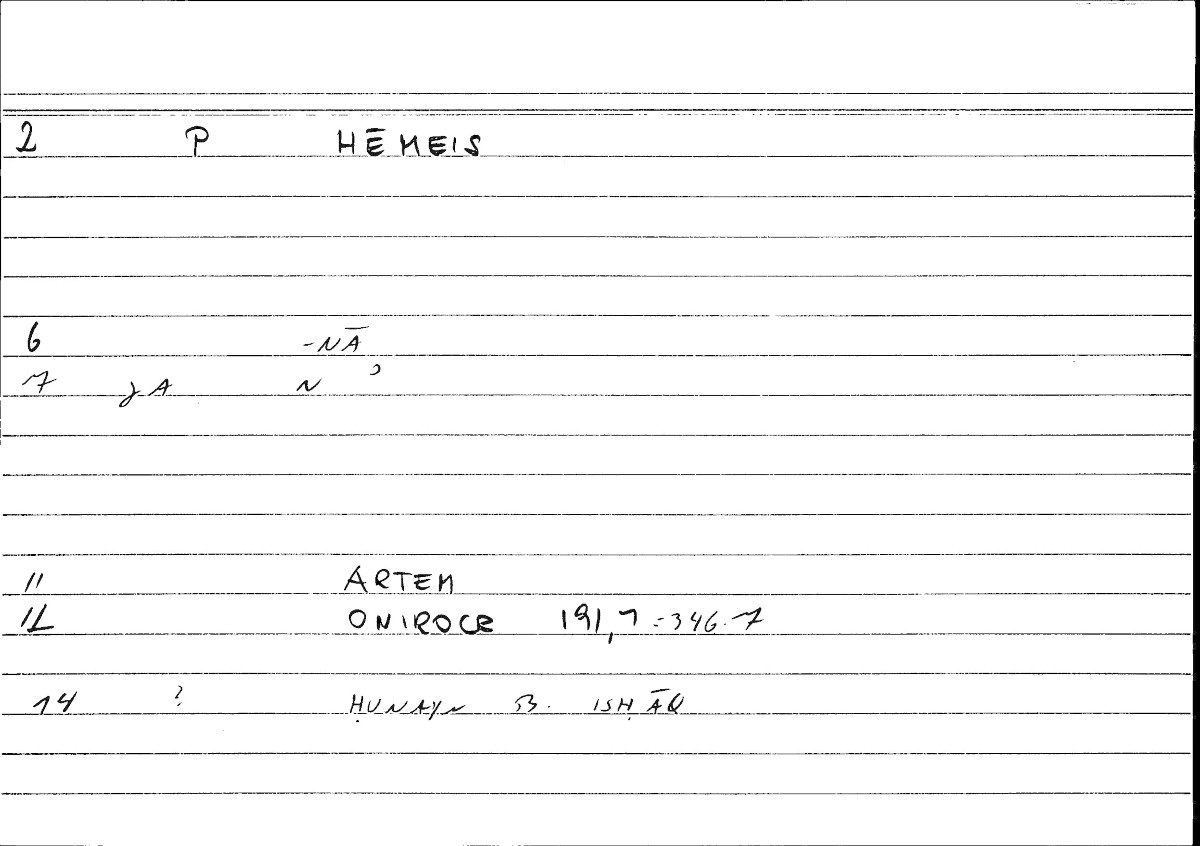 2 P HĒMEIS
6 -NĀ
7 JA N
11 ARTEM
12 ONIROCR 191,7 = 346.7
14 ? ḤUNAYN B. ISḤĀQ